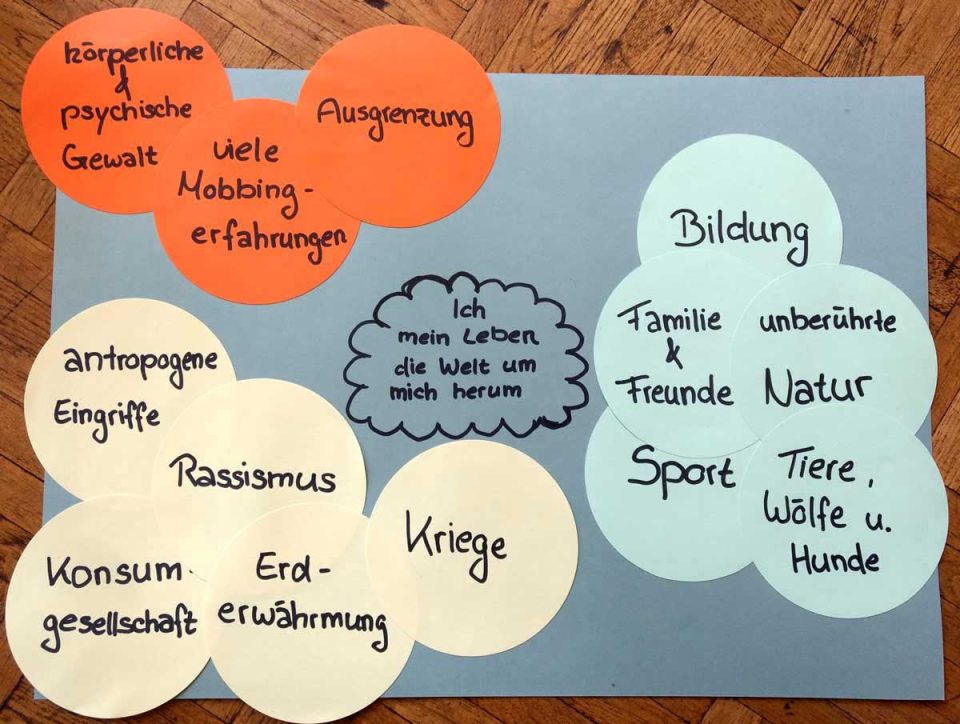 körperliche
&
psychische
Gewalt
viele
Mobbing-
erfahrungen
Ausgrenzung
Bildung
Familie
&
Freunde
unberührte
Natur
Sport
Tiere,
Wölfe u.
Hunde
Ich
mein Leben
die Welt um
mich herum
antropogene
Eingriffe
Rassismus
Konsum-
gesellschaft
Erd-
erwährmung
Kriege